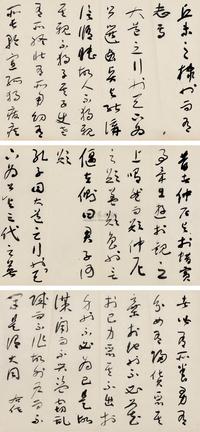 丘未之逮也而有
志焉
大道之行也天下為
公選賢與能講
信修睦故人不獨親
其親不獨子其子使老
有所終壯有所用幼有
所長矜寡孤獨廢疾
昔者仲尼與於蜡賓
事畢出遊於觀之
上喟然而嘆仲尼
之嘆蓋嘆魯也言
偃在側曰君子何
嘆
孔子曰大道之行也
與三代之英
皆有所養男有
分女有歸貨惡其
棄於地也不必藏
於己力惡其不出於
身也不必為己是故
謀閉而不興盜竊亂
賊而不作故外戶而不
閉是謂大同 右任